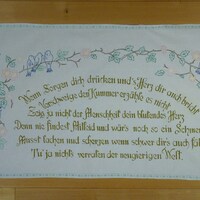 Wenn Sorgen dich drücken und's Herz dir auch bricht
Verschweige den Kummer erzähle es nicht
Zeig ja nicht der Menschheit dein blutendes Herz
Denn nie findest Mitleid und wär's noch so ein Schmerz
Musst lachen und scherzen wenn schwer dir's auch fällt
Tu' ja nichts verraten der neugierigen Welt.